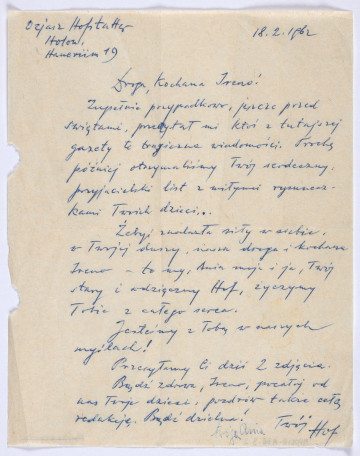 Ozjasz Hofstatter
Holon,
Hanerim 19
18.2.1962
Droga, Kochana Ireno!
Zupełnie przypadkowo, jeszcze przed
świętami, przeczytał mi ktoś z tutajszej
gazety tę tragiczną wiadomość. Trochę
później otrzymaliśmy Twój serdeczny,
przyjacielski list z miłymi rysunecz-
kami Twoich dzieci...
Żebyś znalazła siły w sobie
w Twojej duszy, nasza droga i kochana
Ireno – to my, Ania moja i ja, Twój
stary i wdzięczny Hof, życzymy
Tobie z całego serca.
Jesteśmy z Tobą w naszych
myślach!
Przesyłamy Ci dziś 2 zdjęcia.
Bądź zdrowa, Ireno, pocałuj od
nas Twoje dzieci, pozdrów także całą
redakcję. Bądź dzielna! Twój
Hof
Ania